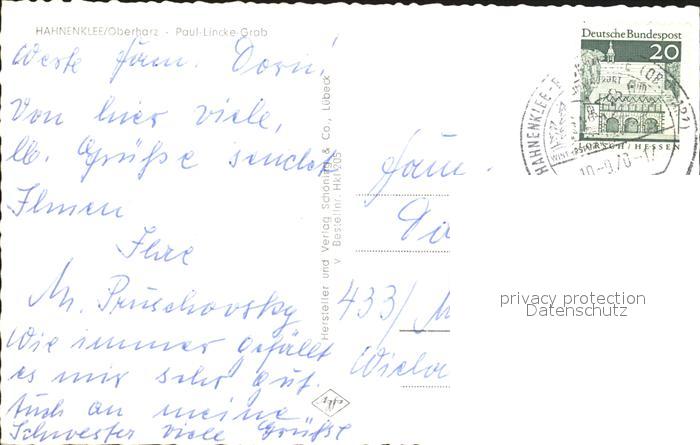 HAHNENKLEE/Oberharz - Paul-Lincke-Grab
Werte Fam. Dorn!
Von hier viele,
lb. Grüße sendet
Ihnen
Ihre
M. Pruschovsky
Wie immer gefällt
es mir sehr gut.
Auch an meine
Schwester viele Grüße
Hersteller und Verlag Schöning & Co., Lübeck
Bestellnr. Hkl 205
Deutsche Bundespost
20
LORSCH/HESSEN
HAHNENKLEE-B
(OBERHARZ)
10-9.70-17
Fam.
Do
433/ M
Wiela
privacy protection
Datenschutz